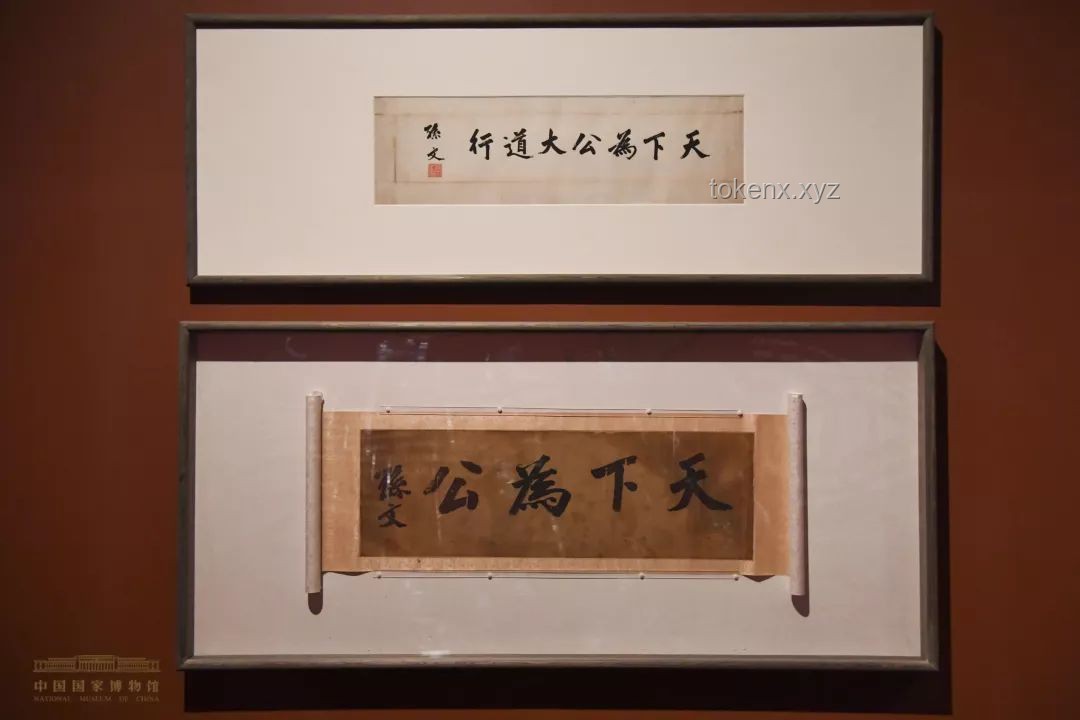 天下為公大道行
孫文
tokenx.xyz
天下為公
孫文
中国国家博物馆
NATIONAL MUSEUM OF CHINA